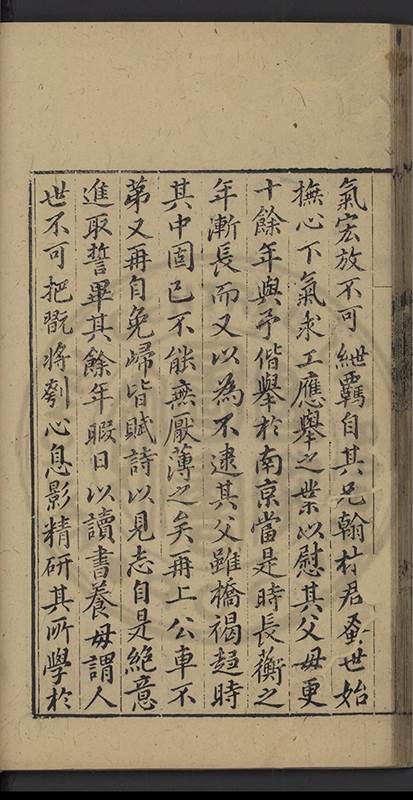 氣宏放不可紲羈自其兄翰林君蚤世始
撫心下氣求工應舉之業以慰其父母更
十餘年與予偕舉於南京當是時長蘅之
年漸長而又以為不逮其父雖橋褐趨時
其中固已不能無厭薄之矣再上公車不
第又再自免歸皆賦詩以見志自是絕意
進取誓畢其餘年暇日以讀書養母謂人
世不可把翫將刳心息影精研其所學於